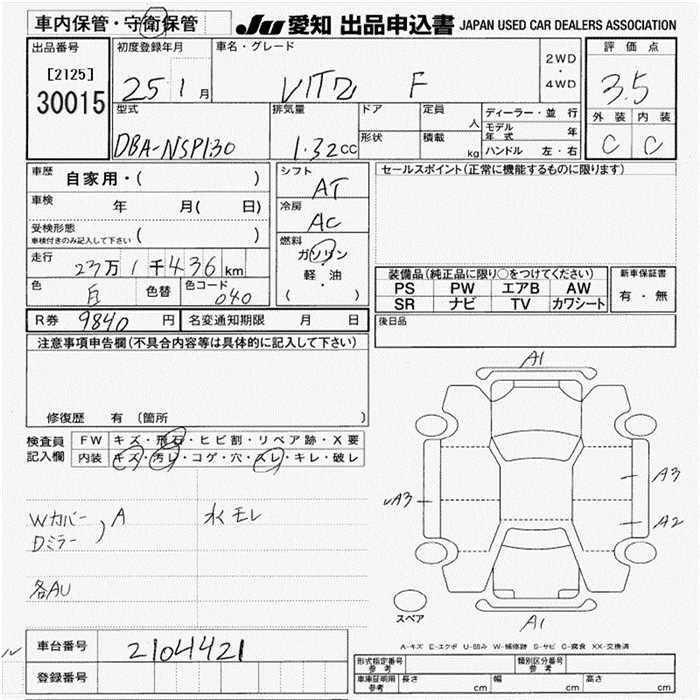 車内保管・守衛保管
JU 愛知 出品申込書 JAPAN USED CAR DEALERS ASSOCIATION
出品番号
[2125]
30015
初度登録年月
25 1月
車名・グレード
VITZ F
2WD
・
4WD
評価点
3.5
外装 内装
C C
型式
DBA-NSP130
排気量
1.32cc
ドア
形状
定員
人
積載
kg
ディーラー・並 行
モデル年式 年
ハンドル 左・右
車歴
自家用・( )
車検
年 月( 日)
受検形態
車検付きのみ記入して下さい ( )
走行
23万1千436km
色
白
色替
色コード
040
シフト
AT
冷房
AC
燃料
ガソリン
・
軽・油
( )
セールスポイント(正常に機能するものに限ります)
装備品(純正品に限り○をつけてください)
PS PW エアB AW
SR ナビ TV カワシート
新車保証書
有・無
R券 9840 円
名変通知期限 月 日
後日品
注意事項申告欄(不具合内容等は具体的に記入して下さい)
修復歴 有 (箇所 )
検査員記入欄
FW キズ・飛石・ヒビ割・リペア跡・X要
内装 キズ・汚レ・コゲ・穴・スレ・キレ・破レ
Wカバー
Dミラー
) A
水モレ
各AU
A1
A3
A3
A2
A1
スペア
A-キズ E-エクボ U-凹み W-補修跡 S-サビ C-腐食 XX-交換済
車台番号
2104421
登録番号
形式指定番号
参考
類別区分番号
参考
車庫証明用
参考
長さ cm
幅 cm
高さ cm